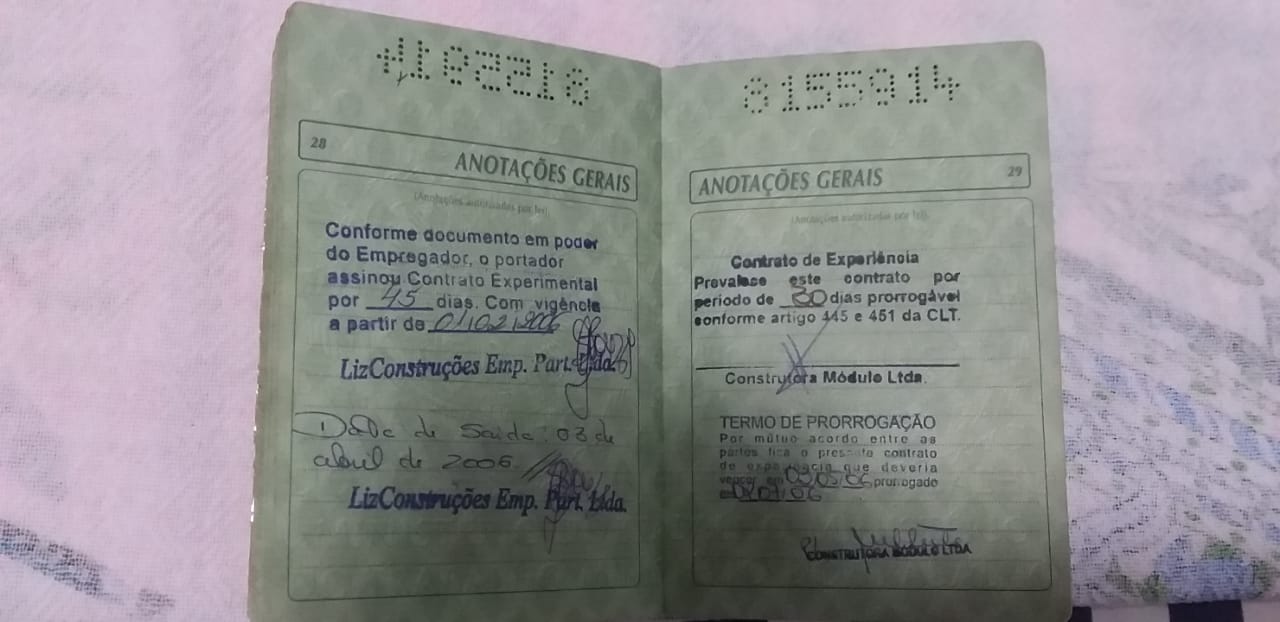 28
ANOTAÇÕES GERAIS
(Anotações autorizadas por lei)
Conforme documento em poder
do Empregador, o portador
assinou Contrato Experimental
por 45 dias. Com vigência
a partir de 01/02/2006
LizConstruções Emp. Part. Ltda.
Data de Saida: 03 de
abril de 2006
LizConstruções Emp. Part. Ltda.
8155914
29
ANOTAÇÕES GERAIS
(Anotações autorizadas por lei)
Contrato de Experiência
Prevalece este contrato por
período de 30 dias prorrogável
conforme artigo 445 e 451 da CLT.
Construtora Módulo Ltda.
TERMO DE PRORROGAÇÃO
Por mútuo acordo entre as
partes fica o presente contrato
de experiência que deveria
vencer em prorrogado
CONSTRUTORA MODULO LTDA